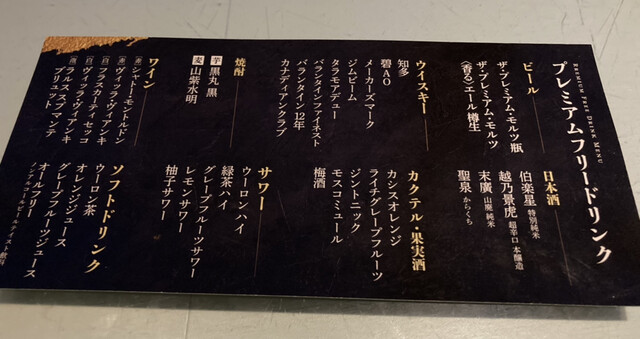 プレミアムフリードリンク
PREMIUM FREE DRINK MENU
ビール
ザ・プレミアム・モルツ瓶
ザ・プレミアム・モルツ
〈香る〉エール樽生
日本酒
伯楽星 特別純米
越乃景虎 超辛口 本醸造
末廣 山廃 純米
聖泉 からくち
ウイスキー
知多
碧AO
メーカーズマーク
ジムビーム
タラモアデュー
バランタインファイネスト
バランタイン12年
カナディアンクラブ
カクテル・果実酒
カシスオレンジ
ライチグレープフルーツ
ジントニック
モスコミュール
梅酒
焼酎
芋 黒丸 黒
麦 山紫水明
サワー
ウーロンハイ
緑茶ハイ
グレープフルーツサワー
レモンサワー
柚子サワー
ワイン
シャトー・モントルドン
ヴィッラ・ヴィアンキ
フラスカーティ セッコ
ヴィッラ・ヴィアンキ
ラルス スプマンテ
ブリュット
ソフトドリンク
ウーロン茶
オレンジジュース
グレープフルーツジュース
オールフリー